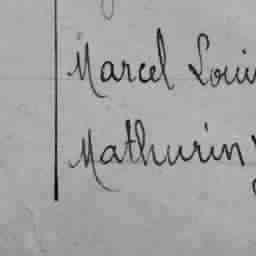 Marcel Louis
Mathurin